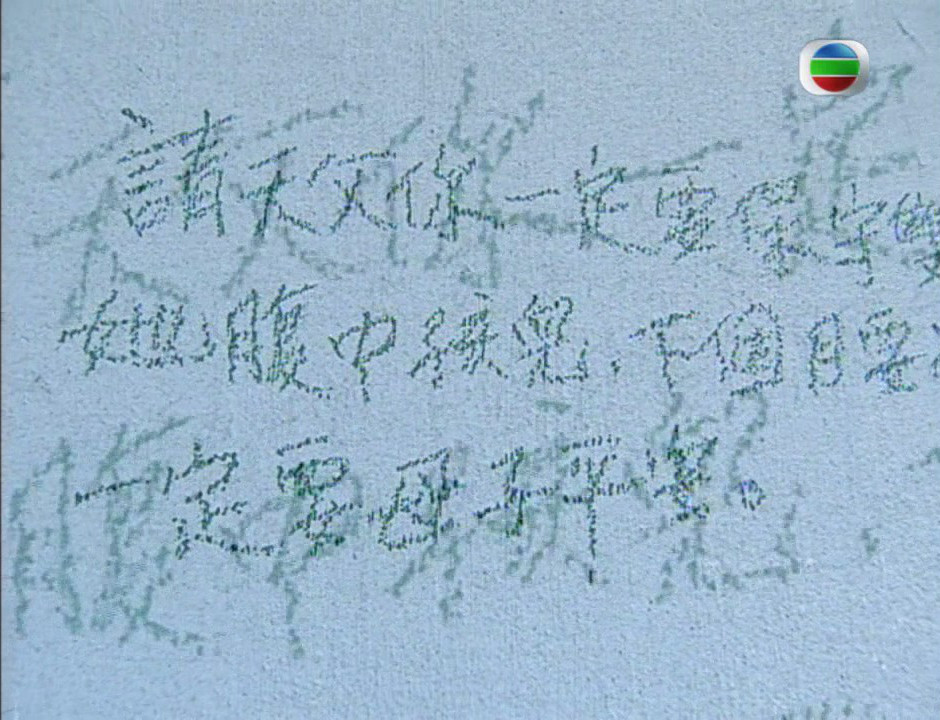 請天父你一定要保守
她腹中孩兒.下個月要
一定要母子平安。